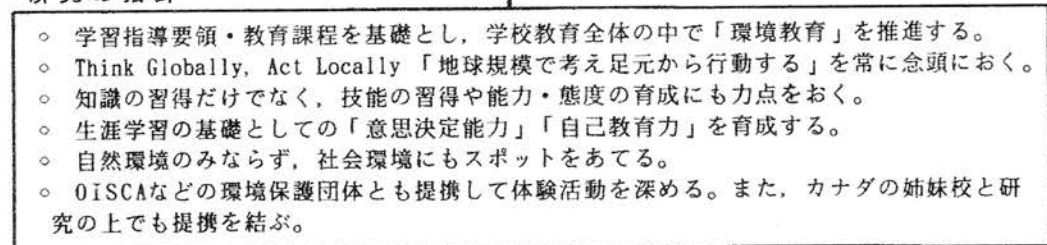 ◦ 学習指導要領・教育課程を基礎とし，学校教育全体の中で「環境教育」を推進する。
◦ Think Globally, Act Locally 「地球規模で考え足元から行動する」を常に念頭におく。
◦ 知識の習得だけでなく，技能の習得や能力・態度の育成にも力点をおく。
◦ 生涯学習の基礎としての「意思決定能力」「自己教育力」を育成する。
◦ 自然環境のみならず，社会環境にもスポットをあてる。
◦ OISCAなどの環境保護団体とも提携して体験活動を深める。また，カナダの姉妹校と研
究の上でも提携を結ぶ。